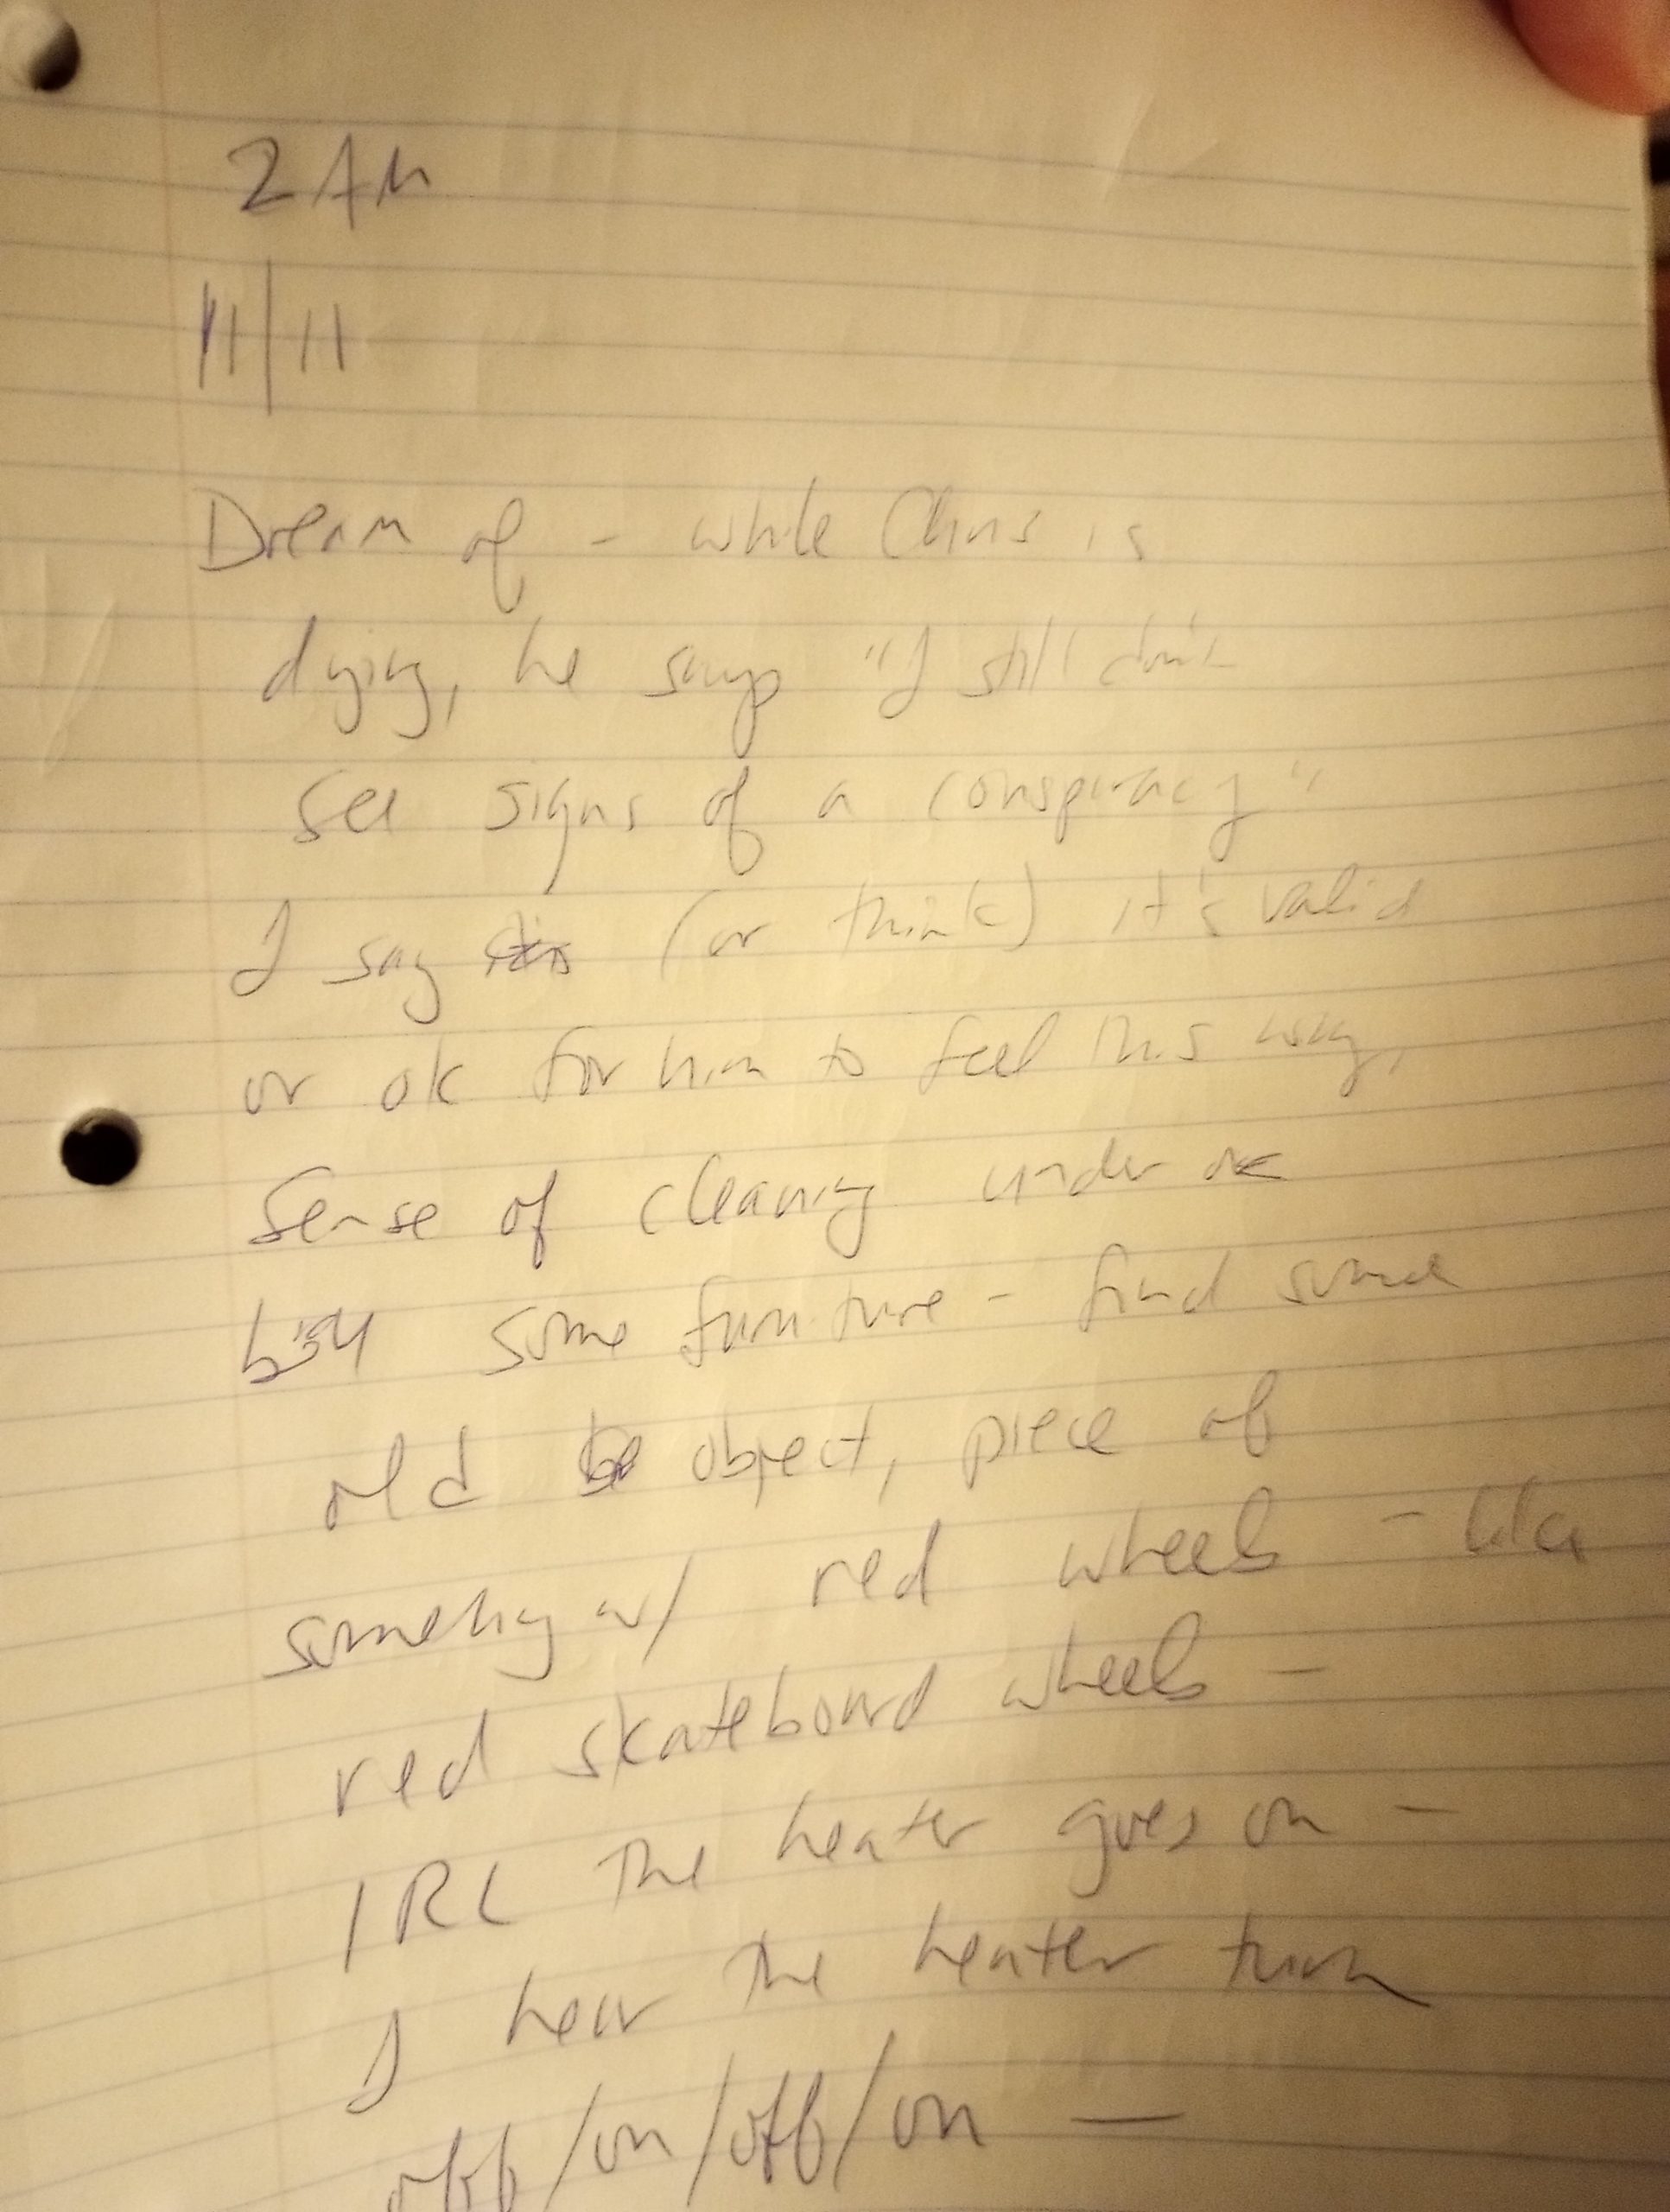 2 AM
11/11
Dream of - while Chris is
dying, he says "I still don't
see signs of a conspiracy"
I say (or think) it's valid
or ok for him to feel this way,
Sense of cleaning under
some furniture - find some
old object, piece of
something w/ red wheels - like
red skateboard wheels -
IRL the heater goes on -
I hear the heater turn
off/on/off/on —